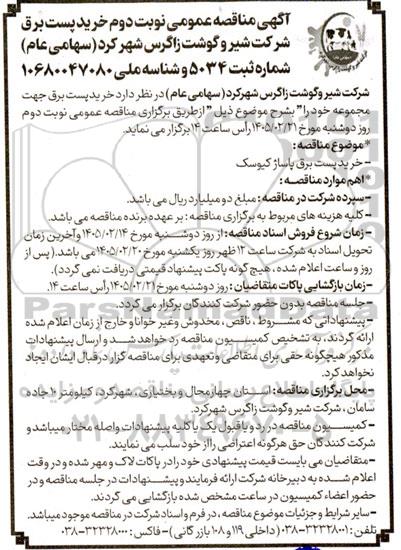 آگهی مناقصه عمومی نوبت دوم خرید پست برق
شرکت شیر و گوشت زاگرس شهر کرد (سهامی عام)
شماره ثبت ۵۰۳۴ و شناسه ملی ۱۰۶۸۰۰۴۷۰۸۰
شرکت شیر و گوشت زاگرس شهرکرد (سهامی عام) در نظر دارد خرید پست برق جهت
مجموعه خود را " بشرح موضوع ذیل " از طریق برگزاری مناقصه عمومی نوبت دوم
روز دوشنبه مورخ ۱۴۰۵/۰۲/۲۱ رأس ساعت ۱۴ برگزار می نماید.
*موضوع مناقصه:
- خرید پست برق پاساژ کیوسک
*اهم موارد مناقصه :
-سپرده شرکت در مناقصه: مبلغ دو میلیارد ریال می باشد.
- کلیه هزینه های مربوط به برگزاری مناقصه: بر عهده برنده مناقصه می باشد.
- زمان شروع فروش اسناد مناقصه: از روز دوشنبه مورخ ۱۴۰۵/۰۲/۱۴ و آخرین زمان
تحویل اسناد به شرکت ساعت ۱۲ ظهر روز یکشنبه مورخ ۱۴۰۵/۰۲/۲۰ می باشد. (پس از
روز و ساعت اعلام شده، هیچ گونه پاکت پیشنهاد قیمتی دریافت نمی گردد).
-زمان بازگشایی پاکات متقاضیان: روز دوشنبه مورخ (۱۴۰۵/۰۲/۲۱ رأس ساعت ۱۴.
- جلسه مناقصه بدون حضور شرکت کنندگان برگزار می گردد.
- پیشنهاداتی که مشروط، ناقص، مخدوش و غیر خوانا و خارج از زمان اعلام شده
ارائه گردند، به تشخیص کمیسیون مناقصه رد خواهد شد و ارسال پیشنهادات
مذکور هیچگونه حقی برای متقاضی و تعهدی برای مناقصه گزار در قبال ایشان ایجاد
نخواهد کرد.
-محل برگزاری مناقصه: استان چهارمحال و بختیاری، شهرکرد، کیلومتر ۱۰ جاده
سامان، شرکت شیر و گوشت زاگرس شهرکرد.
- کمیسیون مناقصه در رد و یا قبول هر یا کلیه پیشنهادات واصله مختار میباشد و
شرکت کنندگان حق هرگونه اعتراضی را از خود سلب می نمایند.
- متقاضیان می بایست قیمت پیشنهادی خود را در پاکات لاک و مهر شده و در وقت
اعلام شده به دبیرخانه شرکت ارائه فرمایند و پیشنهادات در جلسه مناقصه و در
حضور اعضاء کمیسیون در ساعت مشخص شده بازگشایی می گردند.
-سایر شرایط و جزئیات موضوع مناقصه، در فرم و اسناد شرکت در مناقصه موجود میباشد.
تلفن: ۳۲۳۲۸۰۰۱-۰۳۸ (داخلی ۱۱۹ و ۱۰۸ بازرگانی) - فاکس: ۳۲۳۲۸۰۰۰-۰۳۸